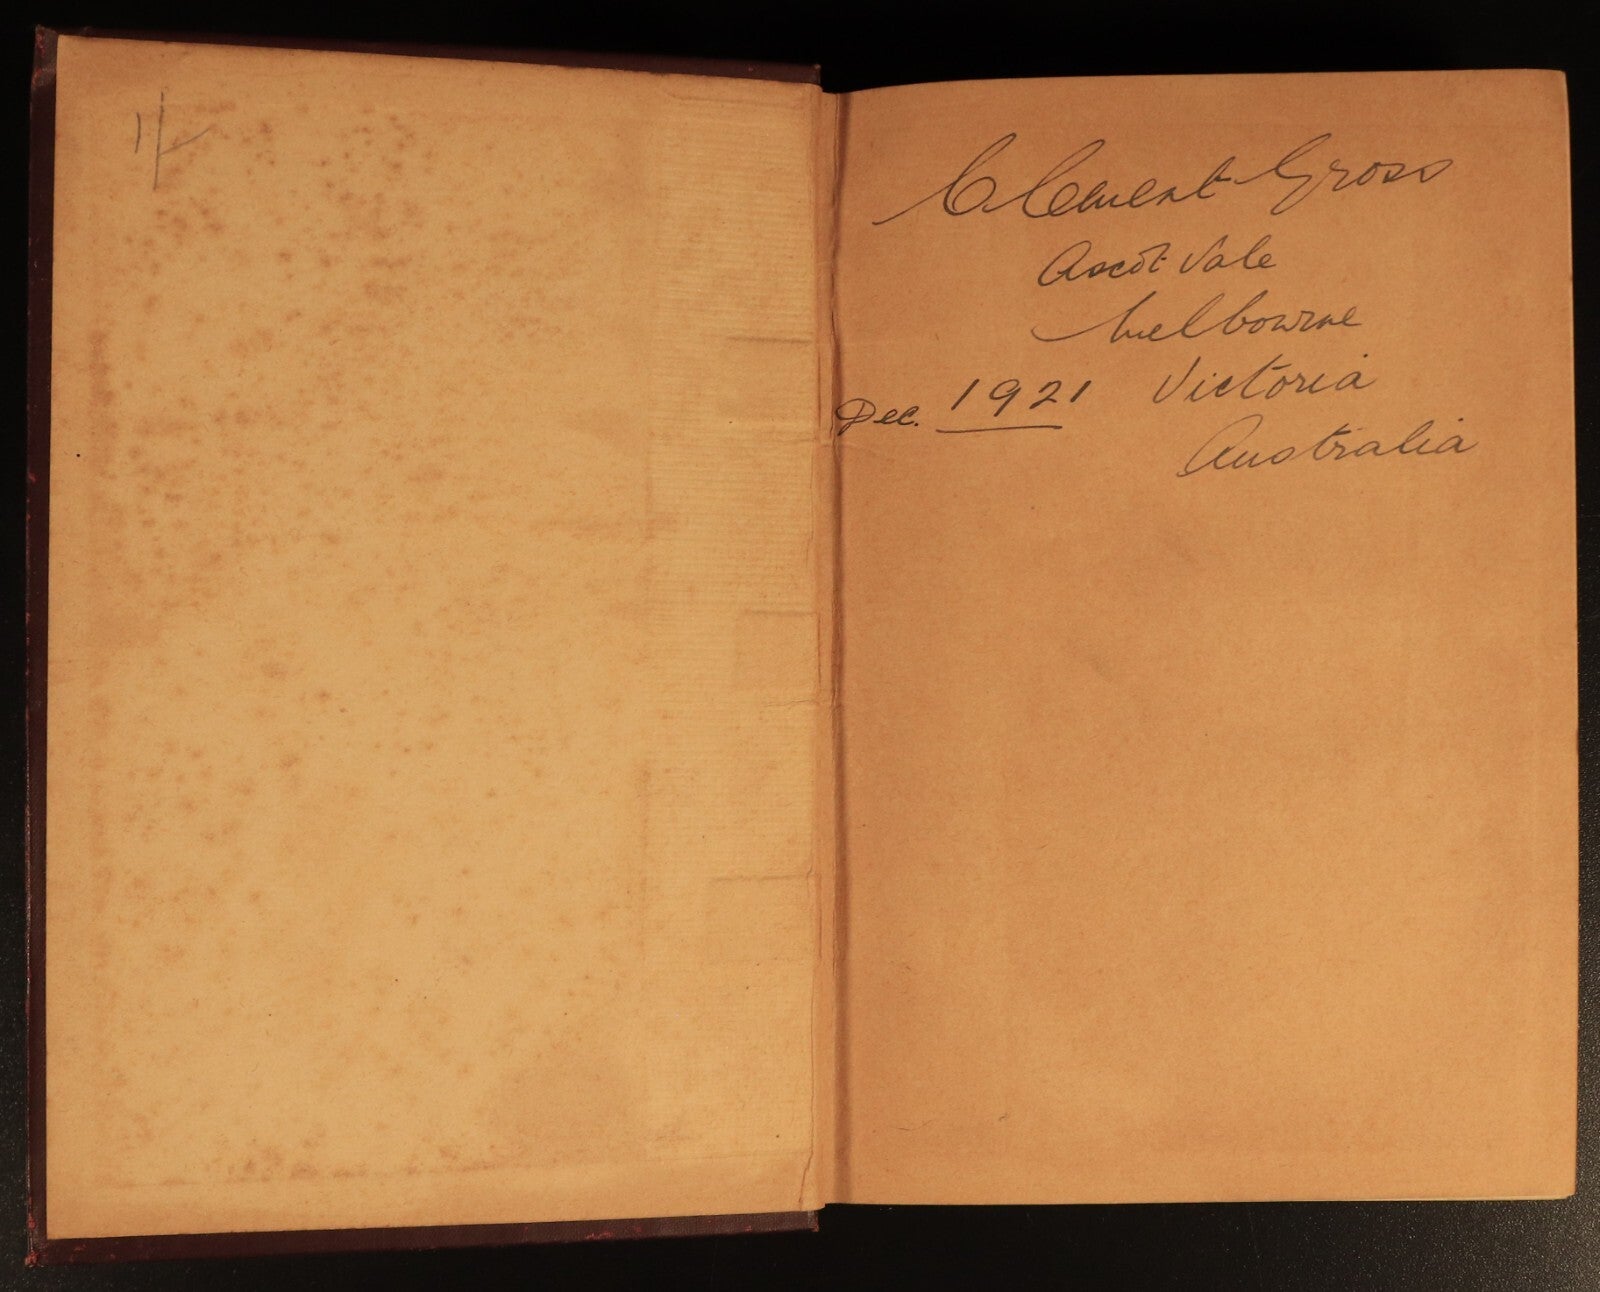 1/-
C Clement Gross
Ascot Vale
Melbourne
Dec. 1921 Victoria
Australia